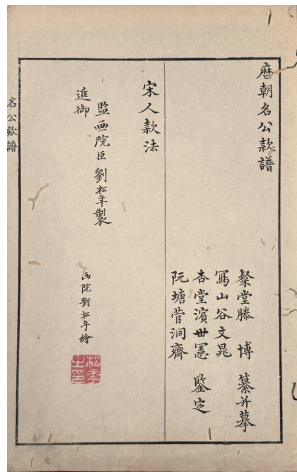 歴朝名公款譜
粲堂滕 博 纂并摹
寫山谷文晁
杏堂濱世憲 鑒定
阮塘菅洞齋
宋人款法
監画院臣劉松年製
進御
画院劉松年繪
名公款譜